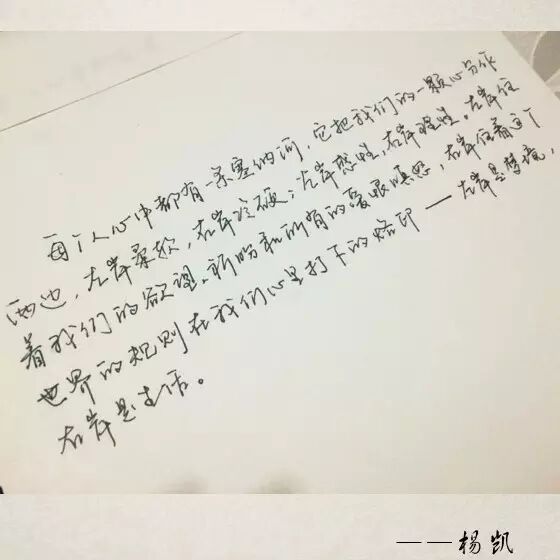 每个人心中都有一条塞纳河，它把我们的一颗心分作
两边，左岸柔软，右岸冷硬；左岸感性，右岸理性。左岸住
着我们的欲望、祈盼和所有的爱恨嗔怒，右岸住着这个
世界的规则在我们心里打下的烙印——左岸是梦境，
右岸是生活。
——杨凯